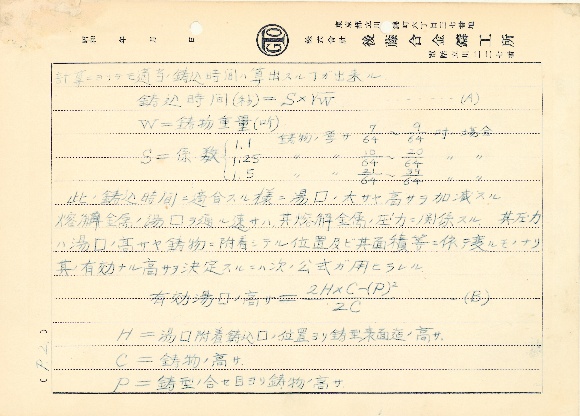 昭和 年 月 日
GTO
株式会社 後藤合金鑄工所
計算ニヨツテモ適当ノ鋳込時間ハ算出スルヿガ出来ル
鋳込時間(秒)=S×√W ‥‥‥‥ (A)
W=鋳物重量(听)
S=係数 { 1.1 鋳物ノ厚サ 7/64 ~ 9/64 吋ノ場合
1.25 〃 〃 10/64 ~ 〃 〃
1.5 〃 〃 21/64 ~ 〃 〃
此ノ鋳込時間ニ適合スル様ニ湯口ノ大サヤ高サヲ加減スル
熔解金屬ノ湯口ヲ通ル速サハ其熔解金屬ノ圧力ニ関係スル 其圧力
ハ湯口ノ高サヤ鋳物ニ附着シテル位置及ビ其面積等ニ依テ変ルモノナリ
其ノ有効ナル高サヲ決定スルニハ次ノ公式ガ用ヒラレル
有効湯口ノ高サ = 2H×C-(P)² / 2C (B)
H = 湯口附着鋳込口ノ位置ヨリ鋳型表面迄ノ高サ
C = 鋳物ノ高サ
P = 鋳型ノ合セ目ヨリ鋳物ノ高サ
(P.2.)